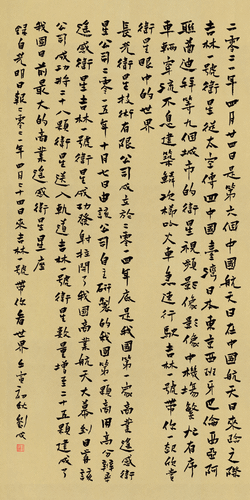 二零二一年四月廿四日是第六个中國航天日在中國航天日來臨之際
吉林一號衛星從太空傳回中國臺灣日本東京西班牙巴倫西亞阿
聯酋迪拜等九個城市的衛星視頻影像影像中機場繁忙有序
車輛穿流不息建築鱗次櫛比火車急速行駛吉林一號帶你一起欣賞
衛星眼中的世界
長光衛星技術有限公司成立於二零一四年底是我國第一家商業遙感衛
星公司二零一五年十月七日由該公司自主研製的我國第一顆商用高分辨率
遙感衛星吉林一號衛星成功發射拉開了我國商業航天大幕到目前該
公司成功将二十八顆衛星送入軌道吉林一號衛星數量增至二十五顆建成了
我國目前最大的商業遙感衛星星座
録自光明日報二零二一年四月二十四日來吉林一號帶你看世界 壬寅初秋 劉